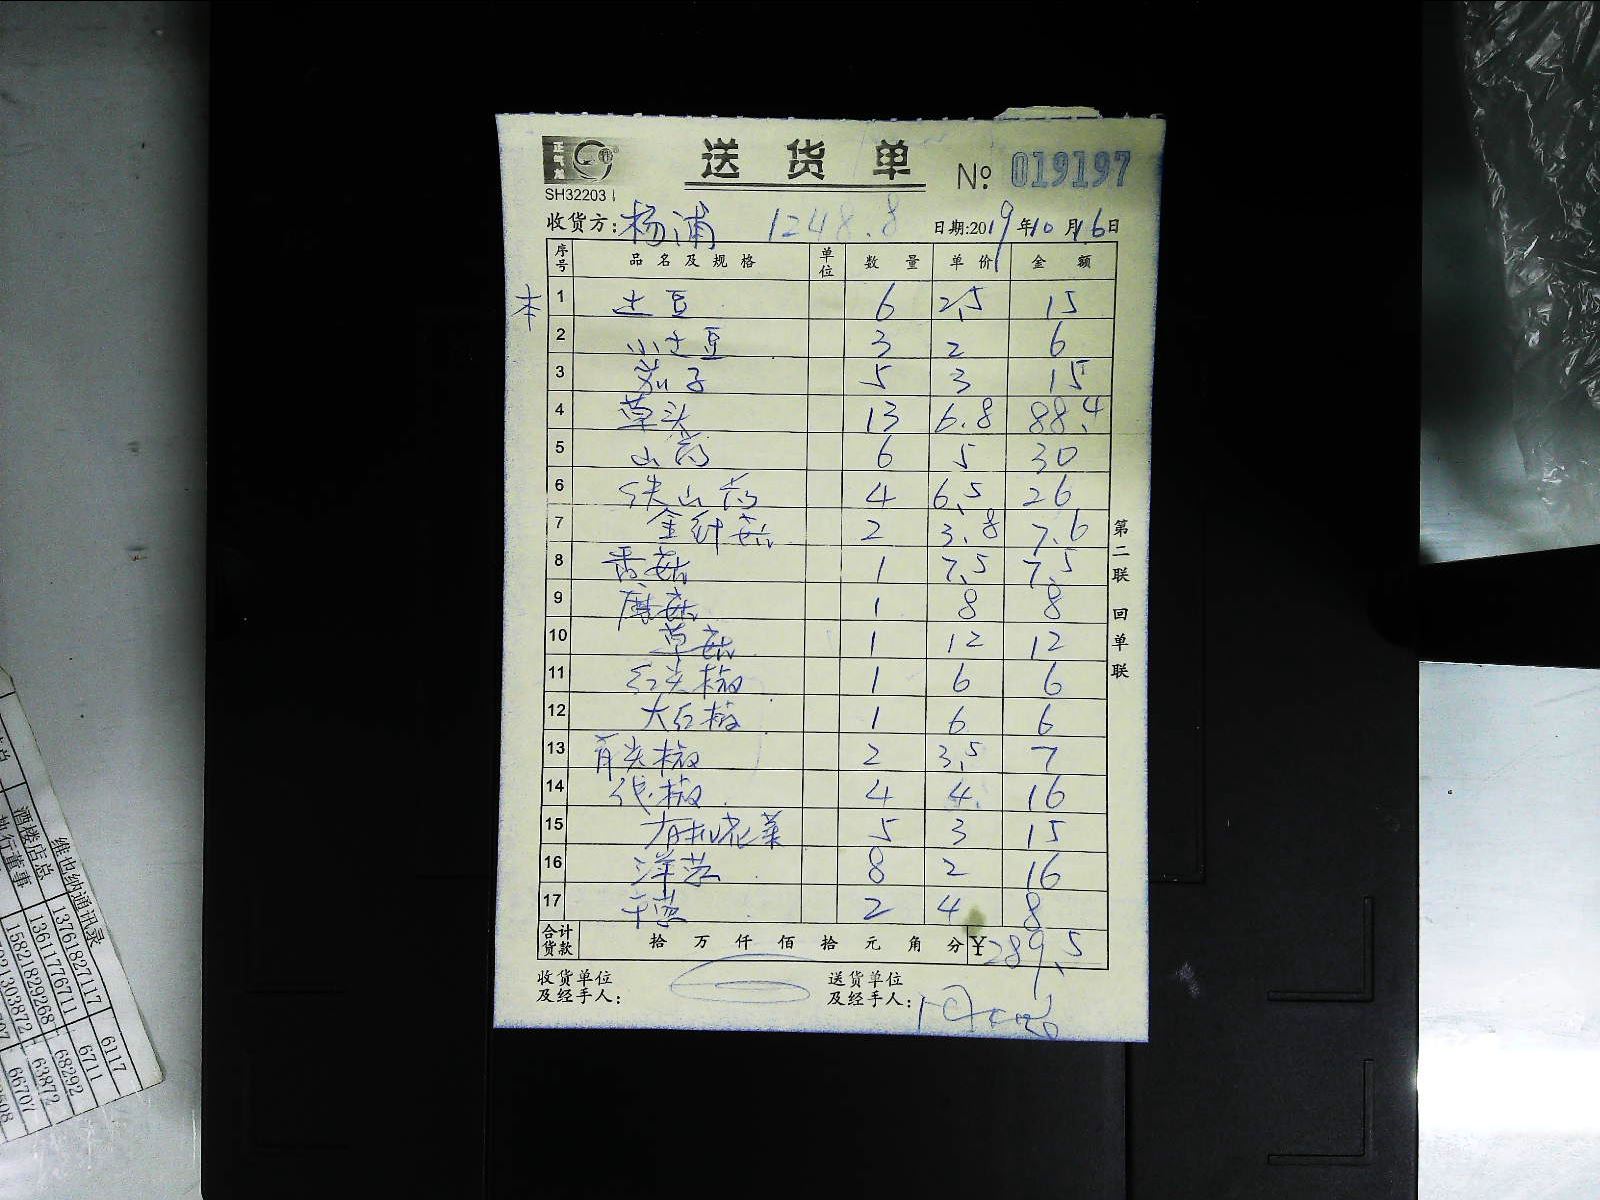 正气龙
送货单 № 019197
SH32203
收货方: 杨浦 1248.8 日期:2019年10月16日
序号 品名及规格 单位 数量 单价 金额
本
1 土豆 6 2.5 15
2 小土豆 3 2 6
3 茄子 5 3 15
4 草头 13 6.8 88.4
5 山药 6 5 30
6 铁山药 4 6.5 26
7 金针菇 2 3.8 7.6
8 香菇 1 7.5 7.5
9 蘑菇 1 8 8
10 草菇 1 12 12
11 红尖椒 1 6 6
12 大红椒 1 6 6
13 青尖椒 2 3.5 7
14 线椒 4 4 16
15 有机花菜 5 3 15
16 洋葱 8 2 16
17 干葱 2 4 8
合计货款 拾万仟佰拾元角分 ¥289.5
收货单位及经手人: 送货单位及经手人:
第二联 回单联
维也纳通讯录
酒楼店总 13761827117 6117
执行董事 13611776711 6711
15821829268 68292
63872
66707